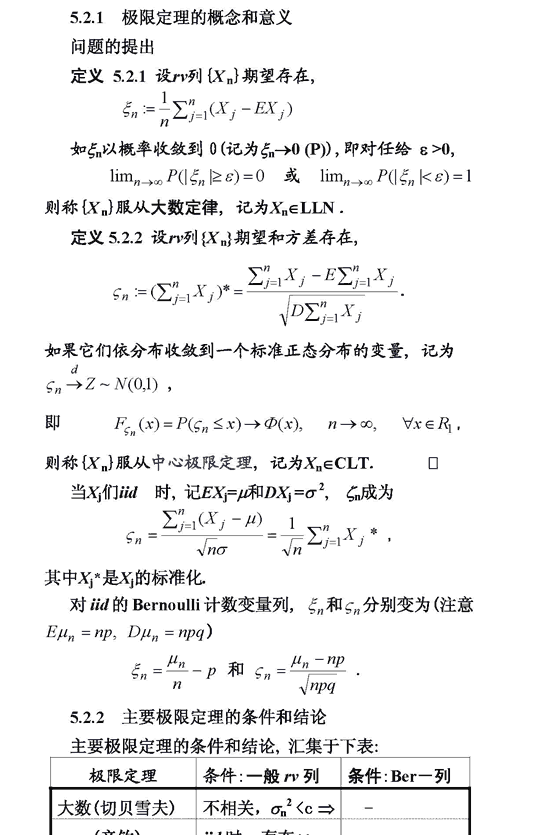 5.2.1 极限定理的概念和意义
问题的提出
定义 5.2.1 设rv列{Xn}期望存在,
ξn := 1/n ∑_{j=1}^{n}(Xj − EXj)
如ξn以概率收敛到 0(记为ξn→0 (P)),即对任给 ε >0,
lim_{n→∞} P(|ξn|≥ε)=0 或 lim_{n→∞} P(|ξn|<ε)=1
则称{Xn}服从大数定律, 记为Xn∈LLN .
定义 5.2.2 设rv列{Xn}期望和方差存在,
ςn := (∑_{j=1}^{n} Xj)* = (∑_{j=1}^{n} Xj − E∑_{j=1}^{n} Xj) / √(D∑_{j=1}^{n} Xj) .
如果它们依分布收敛到一个标准正态分布的变量, 记为
ςn →d Z ~ N(0,1) ,
即 F_{ςn}(x) = P(ςn ≤ x) → Φ(x), n → ∞, ∀x ∈ R1 ,
则称{Xn}服从中心极限定理, 记为Xn∈CLT. □
当Xj们iid 时, 记EXj=μ和DXj=σ², ζn成为
ςn = ∑_{j=1}^{n}(Xj − μ) / √nσ = 1/√n ∑_{j=1}^{n} Xj * ,
其中Xj*是Xj的标准化.
对 iid 的 Bernoulli 计数变量列, ξn 和 ςn 分别变为(注意
Eμn = np, Dμn = npq)
ξn = μn/n − p 和 ςn = (μn − np)/√npq .
5.2.2 主要极限定理的条件和结论
主要极限定理的条件和结论, 汇集于下表:
极限定理 条件:一般 rv 列 条件:Ber－列
大数(切贝雪夫) 不相关, σn²<c ⇒ -